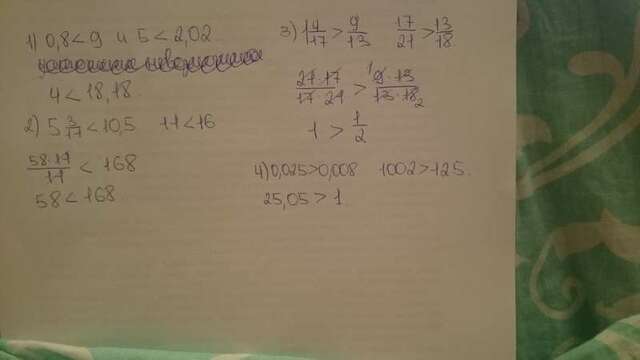 1) 0,8<9 и 5<2,02
4<18,18.
2) 5 3/11 < 10,5 11<16
58·11/11 < 168
58<168
3) 1 4/17 > 9/13 17/21 > 13/18
21·17/17·21 > 9·13/13·18 2
1 > 1/2
4) 0,025>0,008 1002>125.
25,05>1.